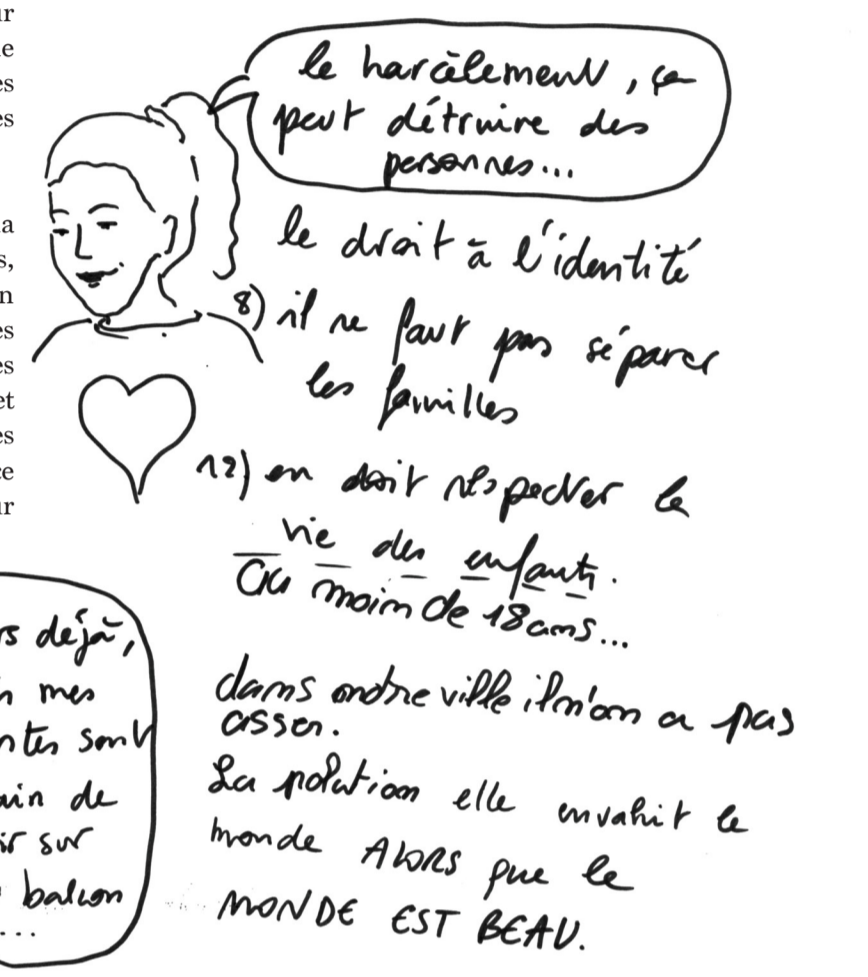 ur
le
es
es
la
s,
n
es
es
et
es
ce
ur
le harcèlement, ça
peut détruire des
personnes...
le droit à l'identité
8) il ne faut pas séparer
les familles
12) on doit respecter la
vie des enfants.
au moin de 18 ans...
dams ontre ville il n'on a pas
asser.
La polution elle envahit le
monde ALORS que le
MONDE EST BEAU.
rs déjà,
mes
ntes sont
ain de
ir sur
balcon
...